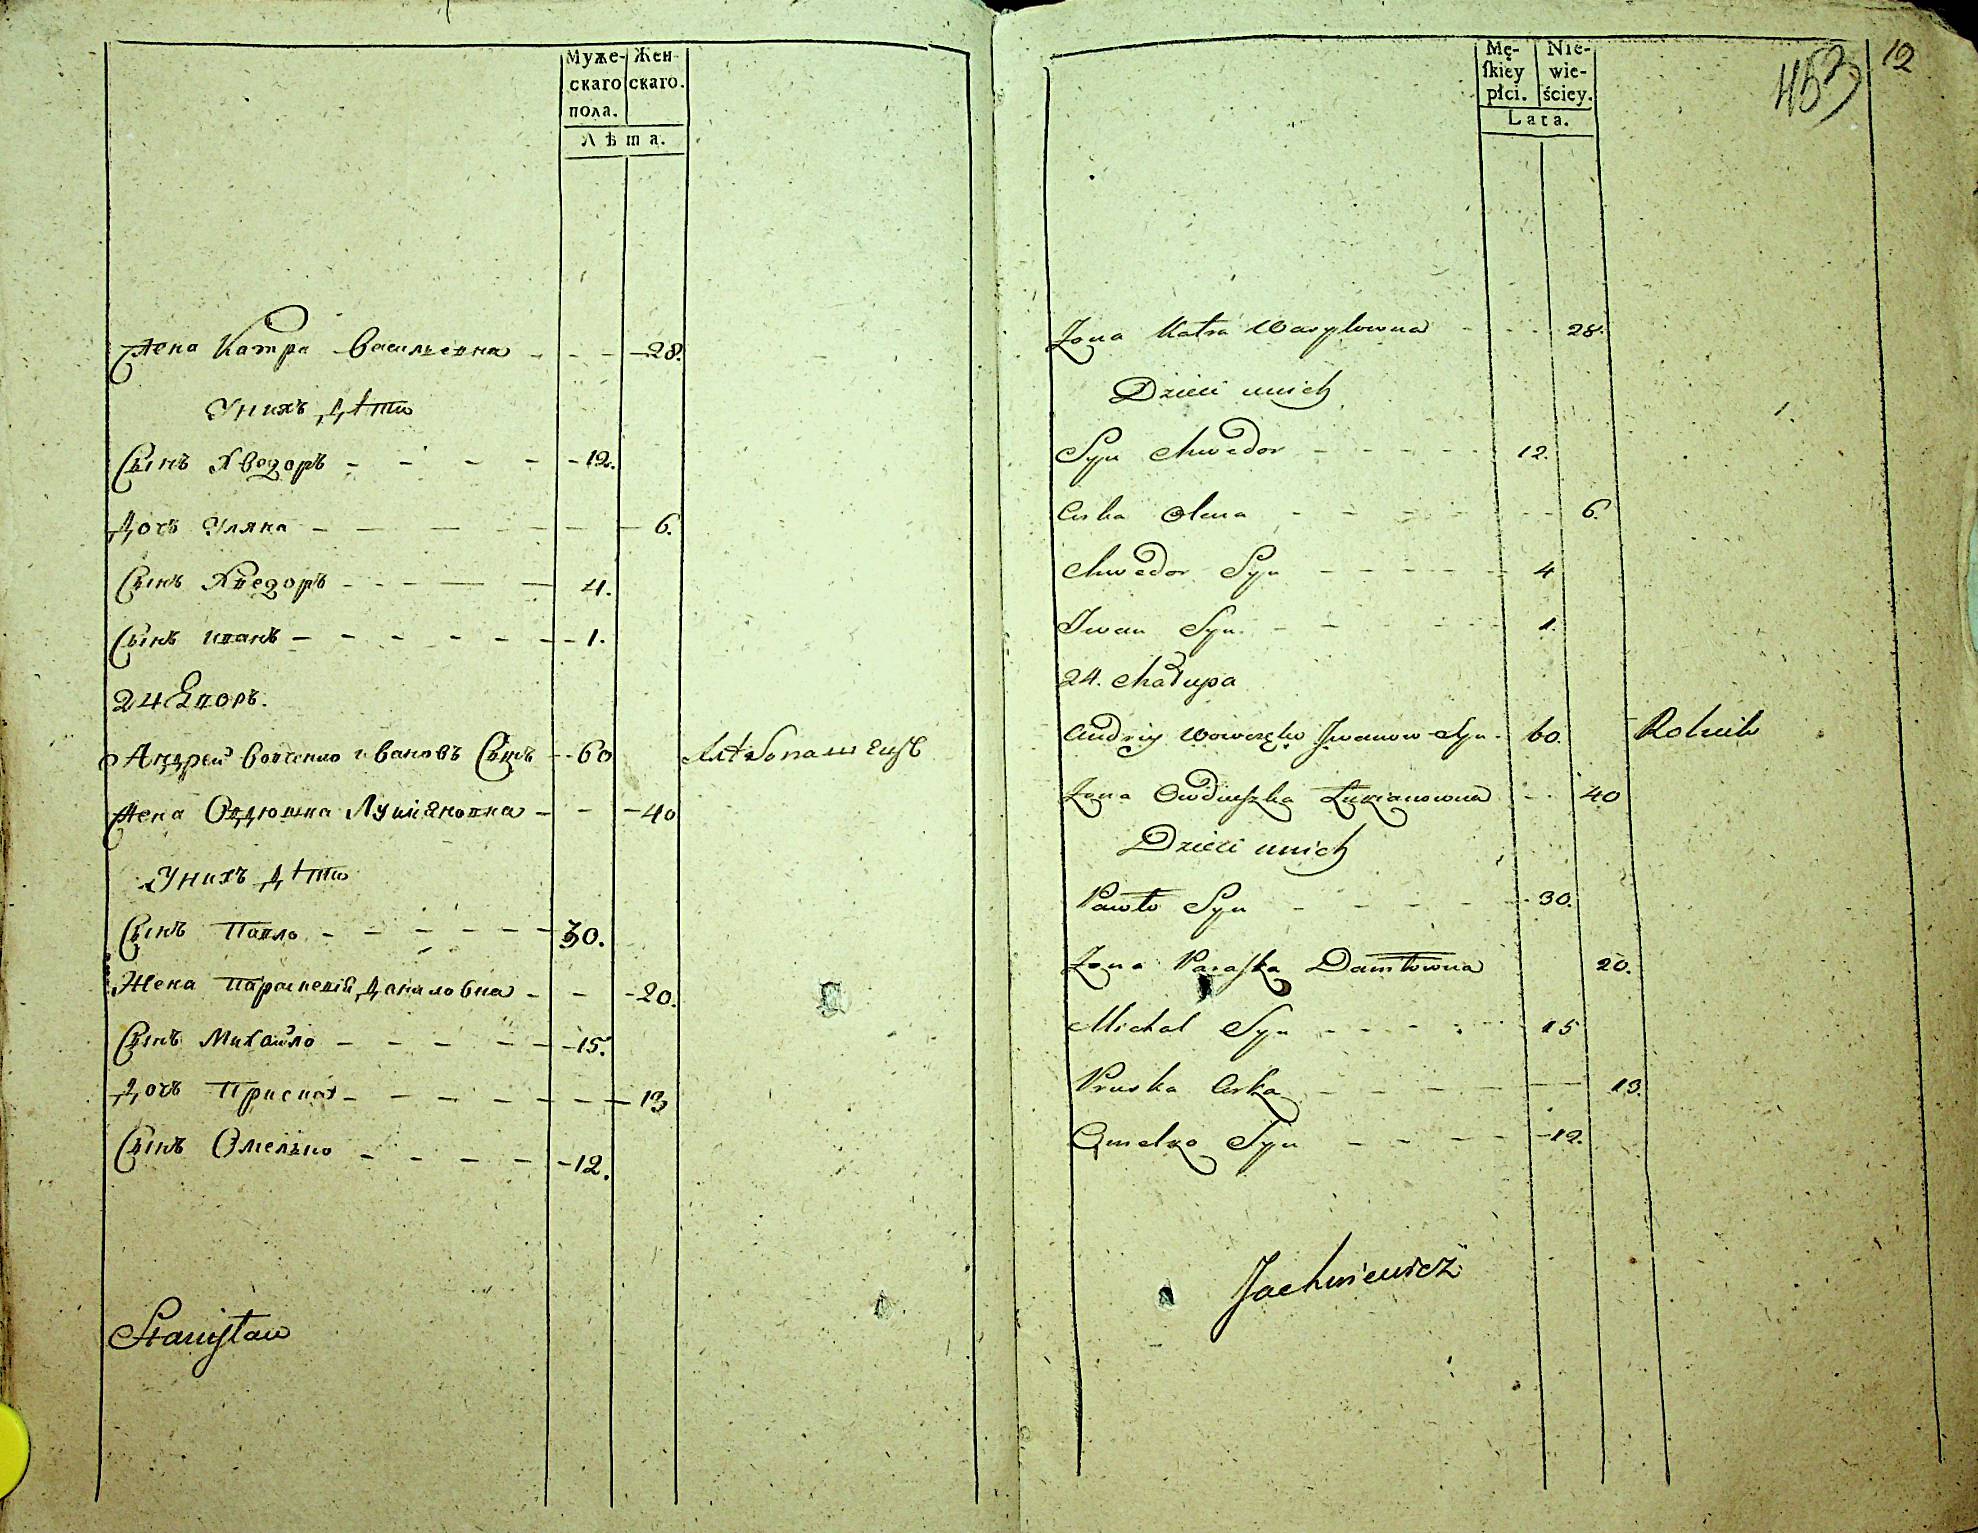 Муже-
скаго
пола.
Жен-
скаго.
Лѣта.
Жена Катра Васильевна - - - 28.
Унихъ дѣти
Сынъ Хведоръ - - - - - 12.
Дочь Уляна - - - - - - 6.
Сынъ Хведоръ - - - - - 4.
Сынъ иванъ - - - - - - - 1.
24 Дворъ.
Андрей Вовченко ивановъ Сынъ - - 60 хлѣбопашецъ
Жена Овдюшка Лукіяновна - - - 40
Унихъ дѣти
Сынъ Павло - - - - - - 30.
Жена Параскевія Даниловна - - - 20.
Сынъ Михайло - - - - - - 15.
Дочь Приська - - - - - - - 13
Сынъ Омелько - - - - - 12.
Stanisław
12
453
Mę-
ſkiey
płci.
Nie-
wie-
ściey.
Lata.
Zona Katra Wasylowna - - - 28.
Dzieci unich
Syn Chwedor - - - - - 12.
Curka Olena - - - - - - 6.
Chwedor Syn - - - - - - 4
Iwan Syn - - - - - 1.
24. Chałupa
Andriy Wowczęko Jwanow Syn - 60. Rolnik
Zona Owdiuszka Łukianowna - - 40
Dzieci unich
Pawło Syn - - - - - 30.
Zona Paraſka Daniłowna 20.
Michał Syn - - - - - 15
Pruska Curka - - - - - 13.
Omelko Syn - - - - - 12.
Jachniewicz